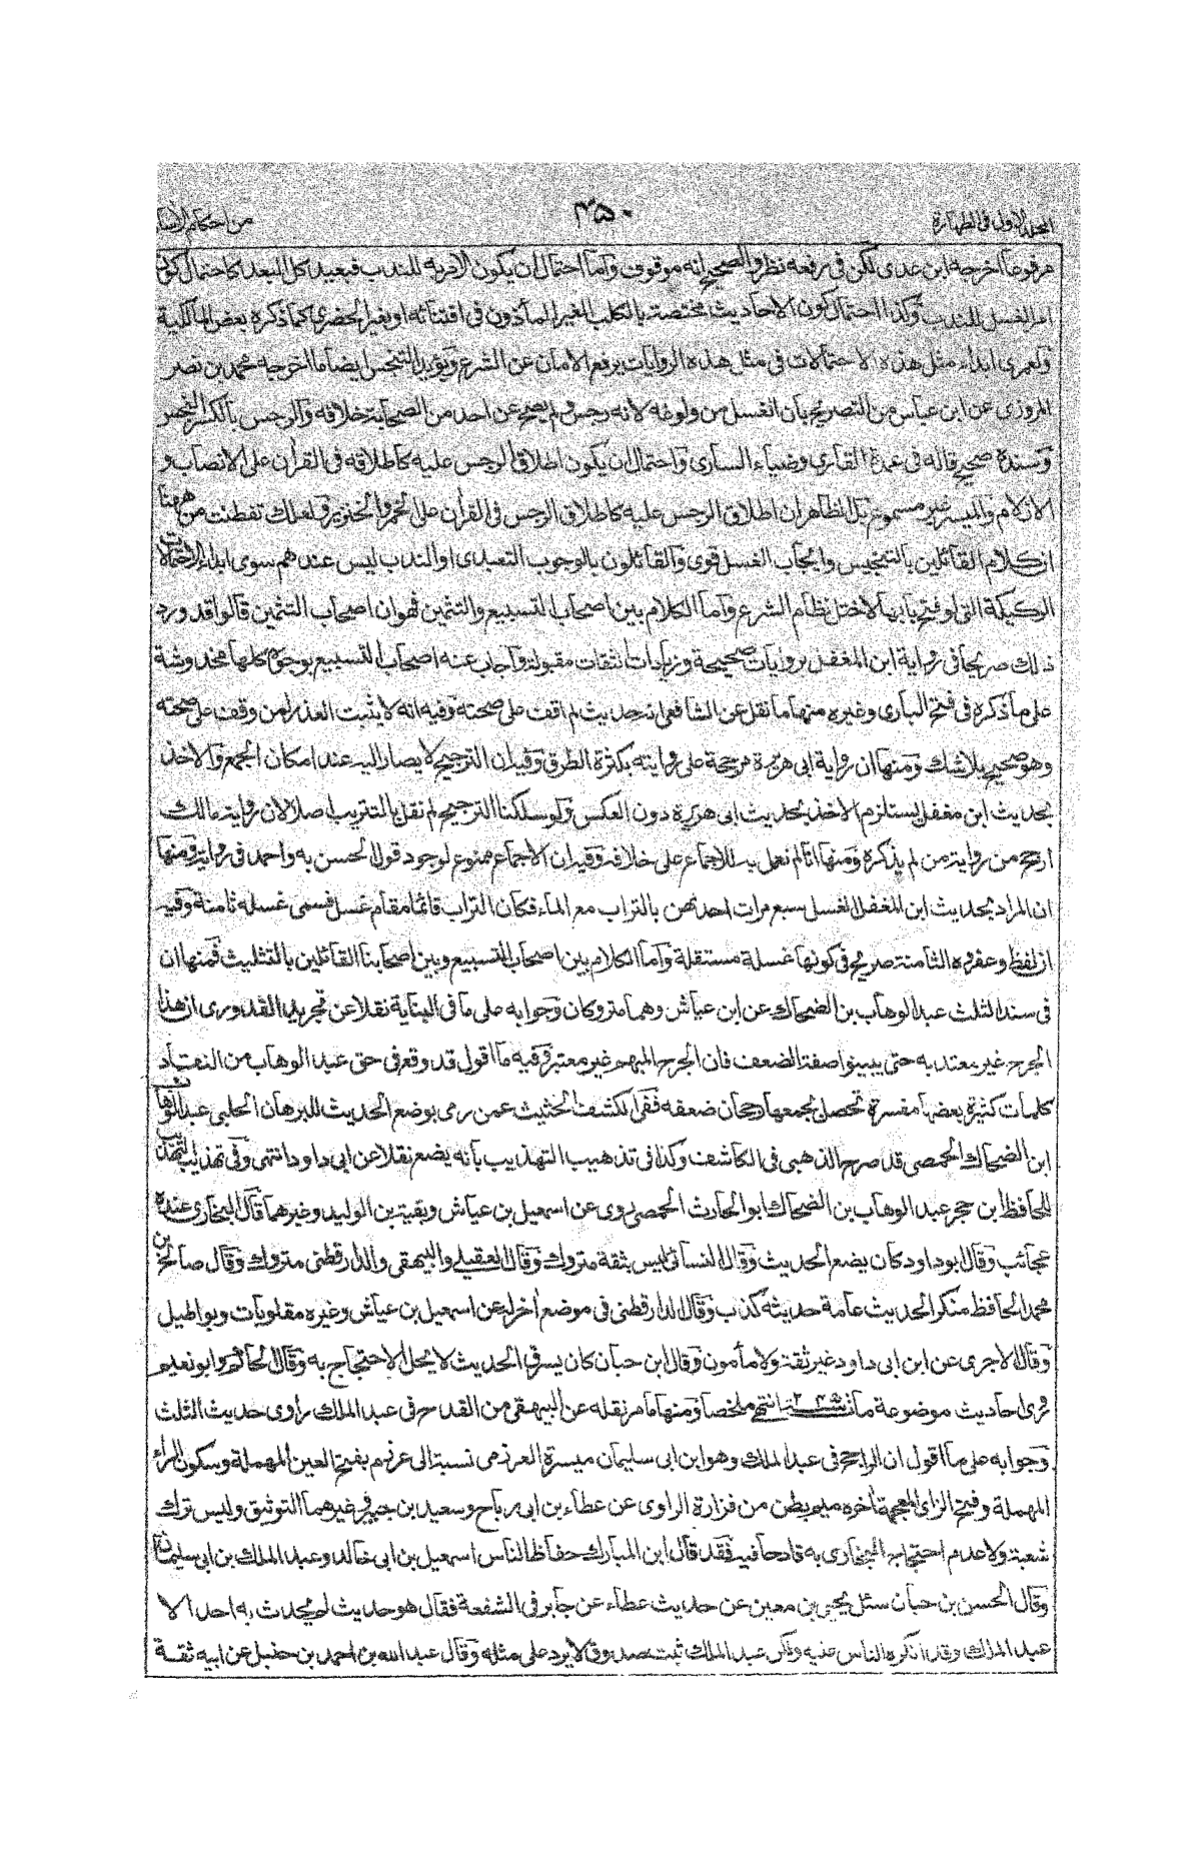 المجلد الاول فى الطهارة
۴۵۰
من احكام الأسار
مرفوعا اخرجه ابن عدى لكن فى رفعه نظر والصحيح انه موقوف وأما احتمال ان يكون الامر به للندب فبعيد كل البعد كاحتمال كون
امر الغسل للندب وكذا احتمال كون الاحاديث مختصة بالكلب الغير المأذون فى اقتنائه او بغير الحضرى كما ذكره بعض المالكية
ولعمرى ابداء مثل هذه الاحتمالات فى مثل هذه الروايات يرفع الامان عن الشرع ويؤيد التنجس ايضا ما اخرجه محمد بن نصر
المروزى عن ابن عباس من التصريح بان الغسل من ولوغه لانه رجس ولم يصح عن احد من الصحابة خلافه والرجس بالكسر النجس
وسنده صحيح قاله فى عمدة القارى وضياء السارى واحتمال ان يكون اطلاق الرجس عليه كاطلاقه فى القرآن على الانصاب و
الازلام والميسر غير مسموع بل الظاهر ان اطلاق الرجس عليه كاطلاق الرجس فى القرآن على الخمر والخنزير ولعلك تفطنت من ههنا
ان كلام القائلين بالتنجيس وايجاب الغسل قوى والقائلون بالوجوب التعبدى او الندب ليس عندهم سوى ابداء الاحتمالات
الركيكة التى لو فتح بابها لاختل نظام الشرع وأما الكلام بين اصحاب التسبيع والتثمين فهو ان اصحاب التثمين قالوا قد ورد
ذلك صريحا فى رواية ابن المغفل بروايات صحيحة وزيادات الثقات مقبولة وأجاب عنه اصحاب التسبيع بوجوه كلها مخدوشة
على ما ذكره فى فتح البارى وغيره منها ما نقل عن الشافعى انه حديث لم اقف على صحته وفيه انه لا يثبت العذر لمن وقف على صحته
وهو صحيح بلا شك ومنها ان رواية ابى هريرة مرجحة على روايته بكثرة الطرق وفيه ان الترجيح لا يصار اليه عند امكان الجمع والاخذ
بحديث ابن مغفل يستلزم الاخذ بحديث ابى هريرة دون العكس ولو سلكنا الترجيح لم نقل بالتتريب اصلا لان رواية مالك
ارجح من رواية من لم يذكره ومنها انا لم نعمل به للاجماع على خلافه وفيه ان الاجماع ممنوع لوجود قول الحسن به واحمد فى رواية ومنها
ان المراد بحديث ابن المغفل الغسل سبع مرات احدٰهن بالتراب مع الماء فكان التراب قائما مقام غسل فسمى غسله ثامنة وفيه
ان لفظ وعفروه الثامنة صريح فى كونها غسلة مستقلة وأما الكلام بين اصحاب التسبيع وبين اصحابنا القائلين بالتثليث فمنها ان
فى سند الثلث عبد الوهاب بن الضحاك عن ابن عياش وهما متروكان وجوابه على ما فى البناية نقلا عن تجريد القدورى ان هذا
الجرح غير معتد به حتى يبينوا صفة الضعف فان الجرح المبهم غير معتبر وفيه ما اقول قد وقع فى حق عبد الوهاب من النقاد
كلمات كثيرة بعضها مفسرة تحصل بجمعها رجحان ضعفه ففى الكشف الحثيث عمن رمى بوضع الحديث للبرهان الحلبى عبد الوهاب
ابن الضحاك الحمصى قد صرح الذهبى فى الكاشف وكذا فى تذهيب التهذيب بأنه يضع نقلا عن ابى داود انتهى وفى تهذيب التهذيب
للحافظ ابن حجر عبد الوهاب بن الضحاك ابو الحارث الحمصى روى عن اسمعيل بن عياش وبقية بن الوليد وغيرهما قال البخارى عنده
عجائب وقال ابو داود كان يضع الحديث وقال النسائى ليس بثقة متروك وقال العقيلى والبيهقى والدارقطنى متروك وقال صالح بن
محمد الحافظ منكر الحديث عامة حديثه كذب وقال الدارقطنى فى موضع أخر له عن اسمعيل بن عياش وغيره مقلوبات وبواطيل
وقال الاجرى عن ابن ابى داود غير ثقة ولا مأمون وقال ابن حبان كان يسرق الحديث لا يحل الاحتجاج به وقال الحاكم وابو نعيم
روى احاديث موضوعة مات سنة ۲۴۵ انتهى ملخصا ومنها ما مر نقله عن البيهقى من القدح فى عبد الملك راوى حديث الثلث
وجوابه على ما اقول ان الراجح فى عبد الملك وهو ابن ابى سليمان ميسرة العرزمى نسبة الى عرزم بفتح العين المهملة وسكون الراء
المهملة وفتح الزاى المعجمة أخره ميم بطن من فزارة الراوى عن عطاء بن ابى رباح وسعيد بن جبير وغيرهما التوثيق وليس ترك
شعبة ولا عدم احتجاج البخارى به قادحا فيه فقد قال ابن المبارك حفاظ الناس اسمعيل بن ابى خالد وعبد الملك بن ابى سليمان
وقال الحسن بن حبان سئل يحيى بن معين عن حديث عطاء عن جابر فى الشفعة فقال هو حديث لم يحدث به احد الا
عبد الملك وقد انكره الناس عليه ولكن عبد الملك ثبت صدوق لا يرد على مثله وقال عبد الله بن احمد بن حنبل عن ابيه ثقة